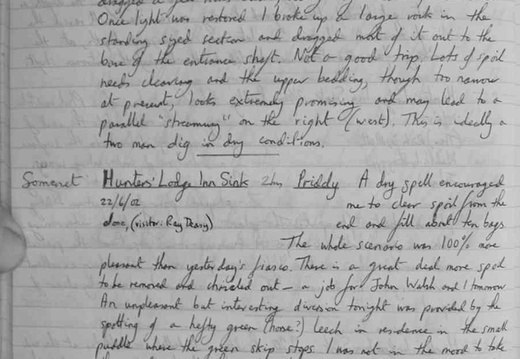 Once light was restored I broke up a large rock in the
standing sized section and dragged most of it out to the
base of the entrance shaft. Not a good trip. Lots of spoil
needs clearing and the upper bedding, though too narrow
at present, looks extremely promising and may lead to a
parallel "streamway" on the right (west). This is ideally a
two man dig in dry conditions.
Somerset Hunters' Lodge Inn Sink 2hrs Priddy A dry spell encouraged
22/6/02 me to clear spoil from the
alone, (visitor: Ray Deasy) end and fill about ten bags.
The whole scenario was 100% more
pleasant than yesterday's fiasco. There is a great deal more spoil
to be removed and chiseled out - a job for John Walsh and I tomorrow
An unpleasant but interesting diversion tonight was provided by the
spotting of a hefty green (horse?) leech in residence in the small
puddle where the green skip stops. I was not in the mood to take